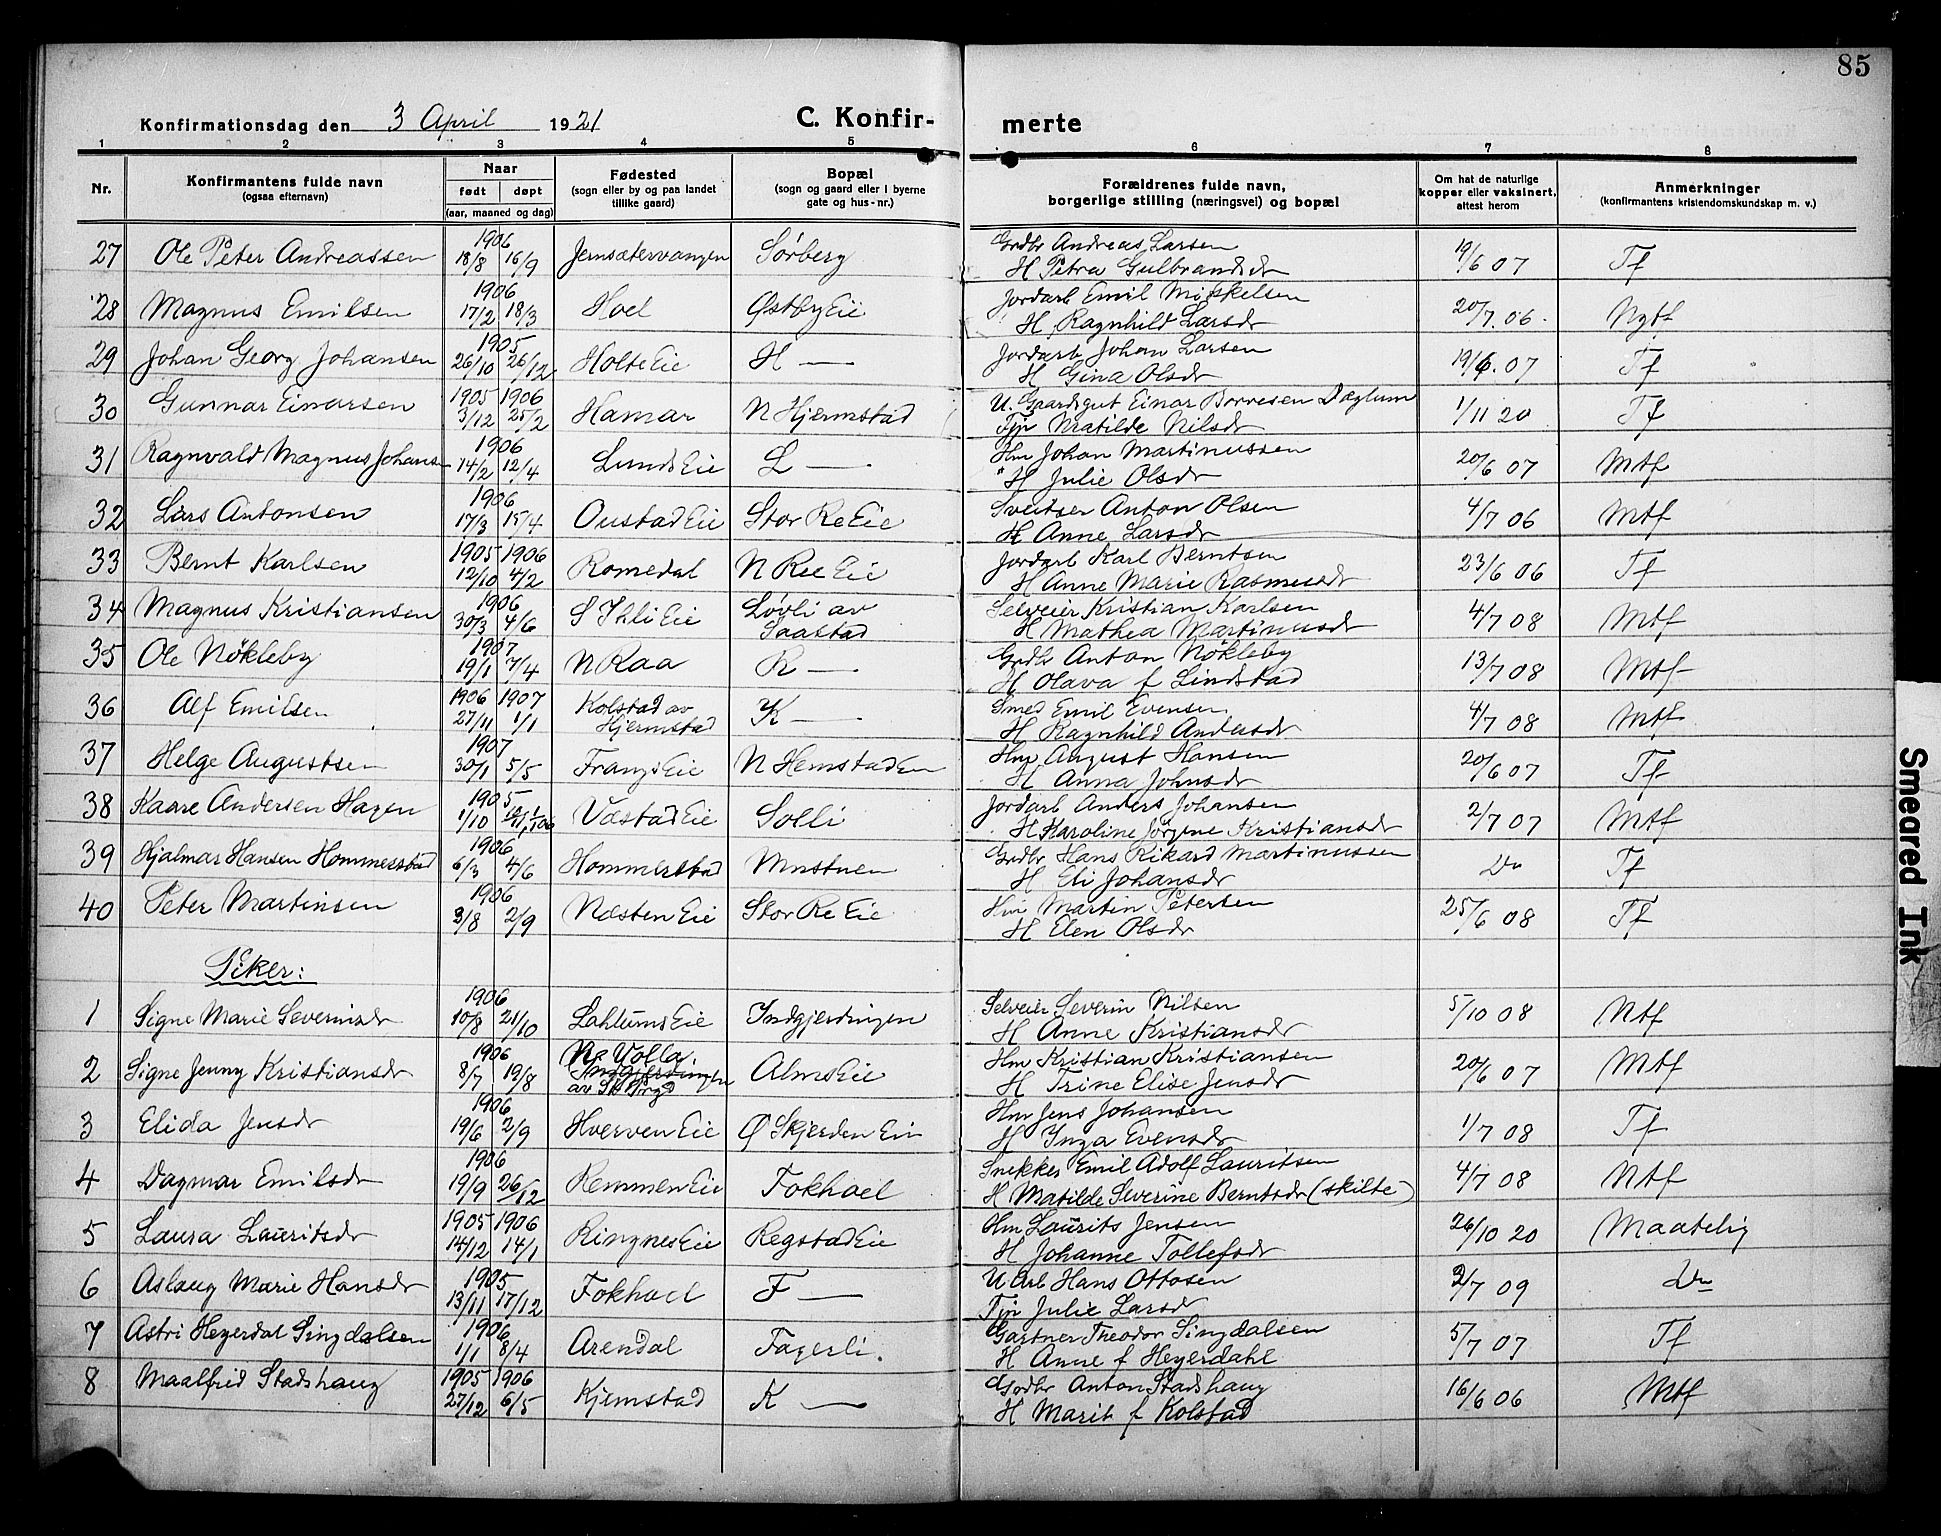 85
Konfirmationsdag den 3 April 1921
C. Konfirmerte
1 2 3 4 5 6 7 8
Nr. | Konfirmantens fulde navn (ogsaa efternavn) | Naar født døpt (aar, maaned og dag) | Fødested (sogn eller by og paa landet tillike gaard) | Bopæl (sogn og gaard eller i byerne gate og hus-nr.) | Forældrenes fulde navn, borgerlige stilling (næringsvei) og bopæl | Om hat de naturlige kopper eller vaksinert, attest herom | Anmerkninger (konfirmantens kristendomskundskap m. v.)
27 Ole Peter Andreassen 1906 18/8 16/9 Jernsætervangen Sørberg Grdbr Andreas Larsen H Petra Gulbrandsdr 19/6 07 Tf
28 Magnus Emilsen 1906 17/2 18/3 Hoel Østby Eie Jordarb Emil Mikkelsen H Ragnhild Larsdr 20/7. 06. Ngtf
29 Johan Georg Johansen 1905 26/10 26/12 Holte Eie H — Jordarb Johan Larsen H Gina Olsdr 19/6. 07 Tf
30 Gunnar Einarsen 1905 3/12 1906 25/2 Hamar N Hjermstad U. Gaardsgut Einar Borresen Dæglum Tjp Matilde Nilsdr 1/11 20 Tf
31 Ragnvald Magnus Johans 1906 14/2 12/4 Lunds Eie L — Hm Johan Martinussen H Julie Olsdr 20/6 07 Mtf
32 Lars Antonsen 1906 17/3 15/4 Oustad Eie Stor Re Eie Sveitser Anton Olsen H Anne Larsdr 4/7 06 Mtf
33 Bernt Karlsen 1905 12/10 1906 4/2 Romedal N Ree Eie Jordarb Karl Berntsen H Anne Marie Rasmusdr 23/6 06 Tf
34 Magnus Kristiansen 1906 30/3 4/6 S Ihli Eie Løvli av Saastad Selveier Kristian Karlsen H Mathea Martinusdr 4/7 08 Mtf
35 Ole Nökleby 1907 19/1 7/4 N Raa R — Grdbr Anton Nökleby H Olava f Lindstad 13/7 08 Mtf
36 Alf Emilsen 1906 27/11 1907 1/1 Kolstad av Hjermstad K — Smed Emil Evensen H Ragnhild Andersdr 4/7 08 Mtf
37 Helge Augustsen 1907 30/1 5/5 Frangs Eie N Hemstad En Hm August Hansen H Anna Johnsdr 20/6 07 Tf
38 Kaare Andersen Hagen 1905 1/10 1/1 06 Væstad Eie Solli Jordarb Anders Johansen H Karoline Jørgine Kristiansdr 2/7 07 Mtf
39 Hjalmar Hansen Hommerstad 1906 6/3 4/6 Hommerstad Mustuen Grdbr Hans Rikard Martinussen H Eli Johansdr Do Tf
40 Peter Martinsen 1906 3/8 2/9 Næsten Eie Stor Re Eie Hm Martin Petersen H Elen Olsdr 25/6 08 Tf
Piker:
1 Signe Marie Severinsdr 1906 10/8 21/10 Lahlums Eie Indgjerdingen Selveier Severin Nilsen H Anne Kristiansdr 5/10 08 Mtf
2 Signe Jenny Kristiansdr 1906 8/7 19/8 N. Volla. Indgjerdingen av St Kristian Alms Eie Hm Kristian Kristiansen H Trine Elise Jensdr 20/6 07 Mtf
3 Elida Jensdr 1906 19/6 2/9 Hverven Eie Ø Skjerden Eie Hm Jens Johansen H Inga Evensdr 1/7 08 Tf
4 Dagmar Emilsdr 1906 19/9 26/12 Remmen Eie Fokhoel Snekker Emil Adolf Lauritsen H Matilde Severine Berntsdr (skilte) 4/7 08 Mtf
5 Laura Lauritsdr 1905 14/12 1906 14/1 Ringnes Eie Regstad Eie Hm Laurits Jensen H Johanne Tollefsdr 26/10 20 Maatelig
6 Aslaug Marie Hansdr 1905 13/11 17/12 Fokhoel F — U Arb Hans Ottosen Tjp Julie Larsdr 2/7 09 Do
7 Astri Heyerdal Singdalsen 1906 1/1 8/4 Arendal Fagerli. Gartner Theodor Singdalsen H Anne f Heyerdahl 5/7 07 Tf
8 Maalfrid Stadshaug 1905 27/12 1906 6/5 Kjemstad K — Grdbr Anton Stadshaug H Marit f Kolstad 16/6 06 Mtf
Smeared Ink